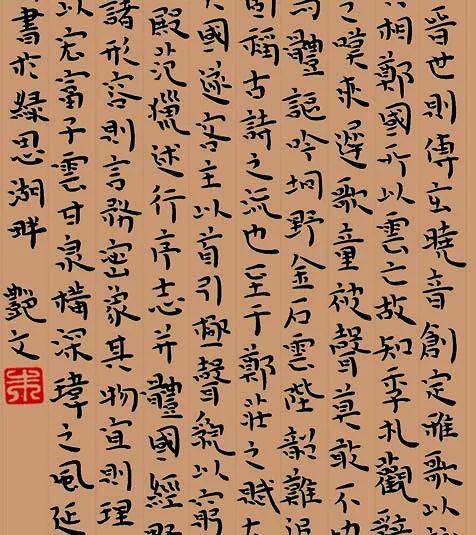 晉世則傅玄曉音創定雅歌以
相鄭國所以雲亡故知季札觀辭
之嘆來遲歌童被聲莫敢不
體謳吟坰野金石雲陛韶難追
固稱古詩之流也至于鄭莊之賦大
國遂客主以首引極聲貌以窮
殿苑獵述行序志并體國經野
諸形容則言務密象其物宜則理
以宏富子雲甘泉構深瑋之風延
書於綠思湖畔 艷文